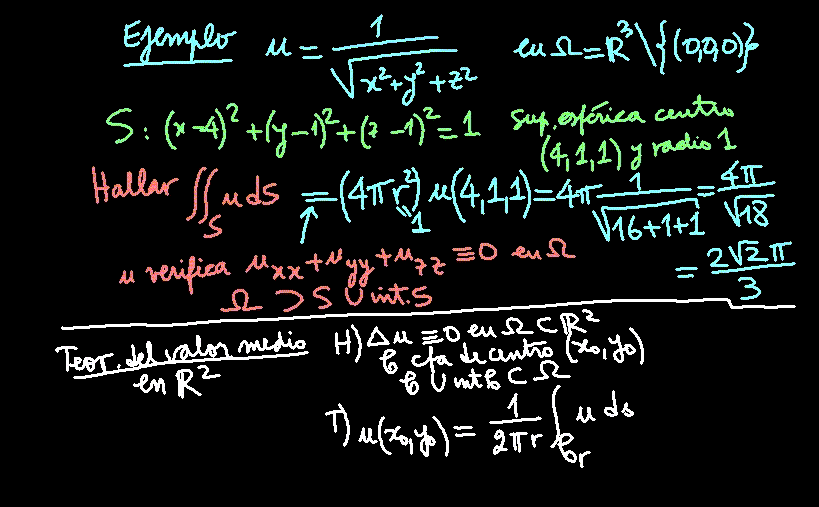 Ejemplo u = 1/√(x²+y²+z²) en Ω = R³\{(0,0,0)}
S: (x-4)²+(y-1)²+(z-1)²=1 sup. esférica centro (4,1,1) y radio 1
Hallar ∬_S u dS = (4πr²) u(4,1,1) = 4π 1/√(16+1+1) = 4π/√18
1
u verifica u_xx+u_yy+u_zz ≡ 0 en Ω = 2√2 π/3
Ω ⊃ S ∪ int. S
Teor. del valor medio en R² H) Δu ≡ 0 en Ω ⊂ R²
C cfa de centro (x₀,y₀)
C ∪ int C ⊂ Ω
T) u(x₀,y₀) = 1/(2πr) ∫_Cr u ds